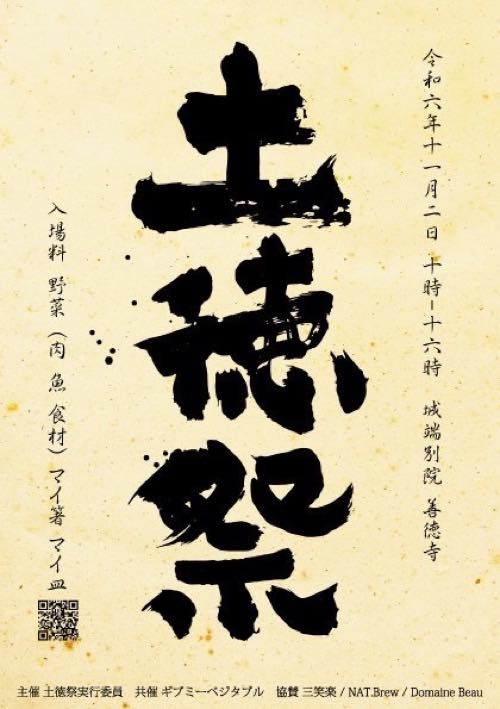 令和六年十一月二日 十時-十六時 城端別院 善徳寺
土徳祭
入場料 野菜(肉 魚 食材)マイ箸 マイ皿
主催 土徳祭実行委員 共催 ギブミーベジタブル 協賛 三笑楽 / NAT.Brew / Domaine Beau